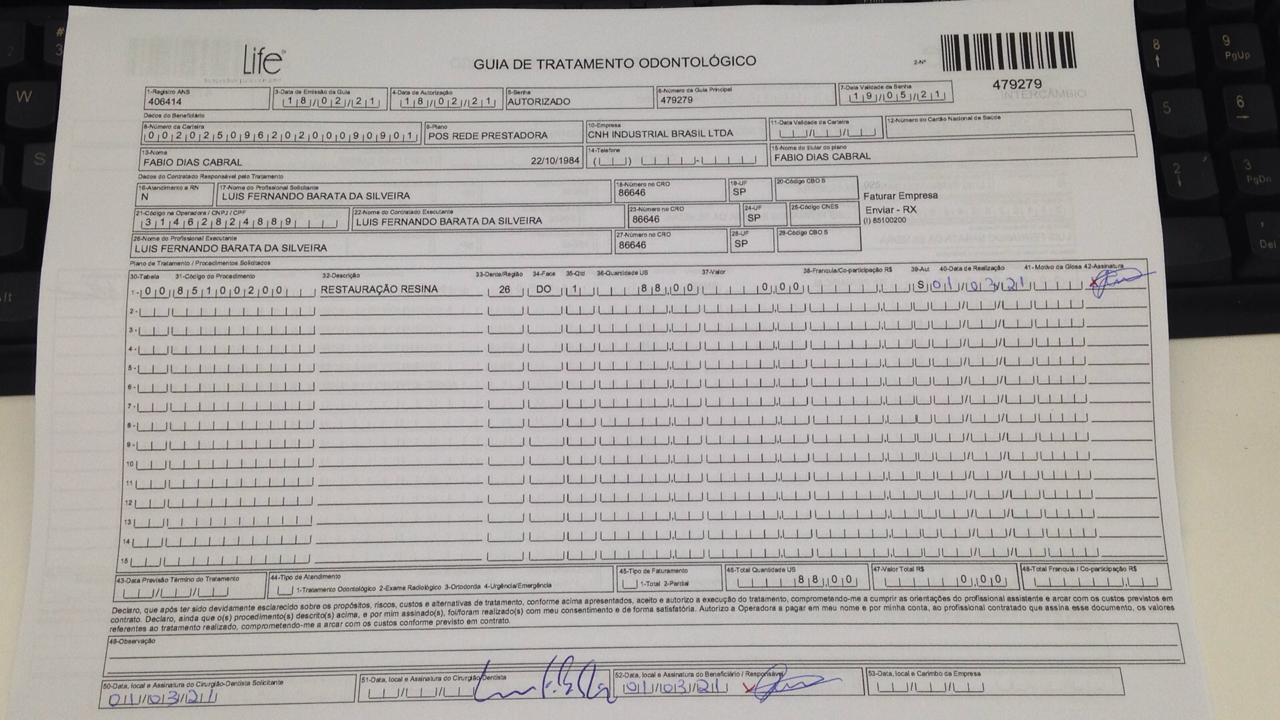 Life
GUIA DE TRATAMENTO ODONTOLÓGICO
2-Nº
479279
INTERCÂMBIO
1-Registro ANS 3-Data de Emissão da Guia 4-Data de Autorização 5-Senha 6-Número da Guia Principal 7-Data Validade da Senha
406414 18/02/21 18/02/21 AUTORIZADO 479279 19/05/21
Dados do Beneficiário
8-Número da Carteira 9-Plano 10-Empresa 11-Data Validade da Carteira 12-Número do Cartão Nacional de Saúde
00202509620200090901 POS REDE PRESTADORA CNH INDUSTRIAL BRASIL LTDA
13-Nome 14-Telefone 15-Nome do titular do plano
FABIO DIAS CABRAL 22/10/1984 FABIO DIAS CABRAL
Dados do Contratado Responsável pelo Tratamento
16-Atendimento a RN 17-Nome do Profissional Solicitante 18-Número no CRO 19-UF 20-Código CBO S
N LUIS FERNANDO BARATA DA SILVEIRA 86646 SP
Faturar Empresa
Enviar - RX
(I) 85100200
21-Código na Operadora / CNPJ / CPF 22-Nome do Contratado Executante 23-Número no CRO 24-UF 25-Código CNES
31462824889 LUIS FERNANDO BARATA DA SILVEIRA 86646 SP
26-Nome do Profissional Executante 27-Número no CRO 28-UF 29-Código CBO S
LUIS FERNANDO BARATA DA SILVEIRA 86646 SP
Plano de Tratamento / Procedimentos Solicitados
30-Tabela 31-Código do Procedimento 32-Descrição 33-Dente/Região 34-Face 35-Qtd 36-Quantidade US 37-Valor 38-Franquia/Co-participação R$ 39-Aut 40-Data de Realização 41- Motivo da Glosa 42-Assinatura
1- 00 85100200 RESTAURAÇÃO RESINA 26 DO 1 88,00 0,00 S 01/03/21
2-
3-
4-
5-
6-
7-
8-
9-
10
11
12
13
14
15
43-Data Previsão Término do Tratamento 44-Tipo de Atendimento 45-Tipo de Faturamento 46-Total Quantidade US 47-Valor Total R$ 48-Total Franquia / Co-participação R$
1-Tratamento Odontológico 2-Exame Radiológico 3-Ortodontia 4-Urgência/Emergência 1-Total 2-Parcial 88,00 0,00
Declaro, que após ter sido devidamente esclarecido sobre os propósitos, riscos, custos e alternativas de tratamento, conforme acima apresentados, aceito e autorizo a execução do tratamento, comprometendo-me a cumprir as orientações do profissional assistente e arcar com os custos previstos em
contrato. Declaro, ainda que o(s) procedimento(s) descrito(s) acima, e por mim assinado(s), foi/foram realizado(s) com meu consentimento e de forma satisfatória. Autorizo a Operadora a pagar em meu nome e por minha conta, ao profissional contratado que assina esse documento, os valores
referentes ao tratamento realizado, comprometendo-me a arcar com os custos conforme previsto em contrato.
49-Observação
50-Data, local e Assinatura do Cirurgião-Dentista Solicitante 51-Data, local e Assinatura do Cirurgião-Dentista 52-Data, local e Assinatura do Beneficiário / Responsável 53-Data, local e Carimbo da Empresa
01/03/21 01/03/21